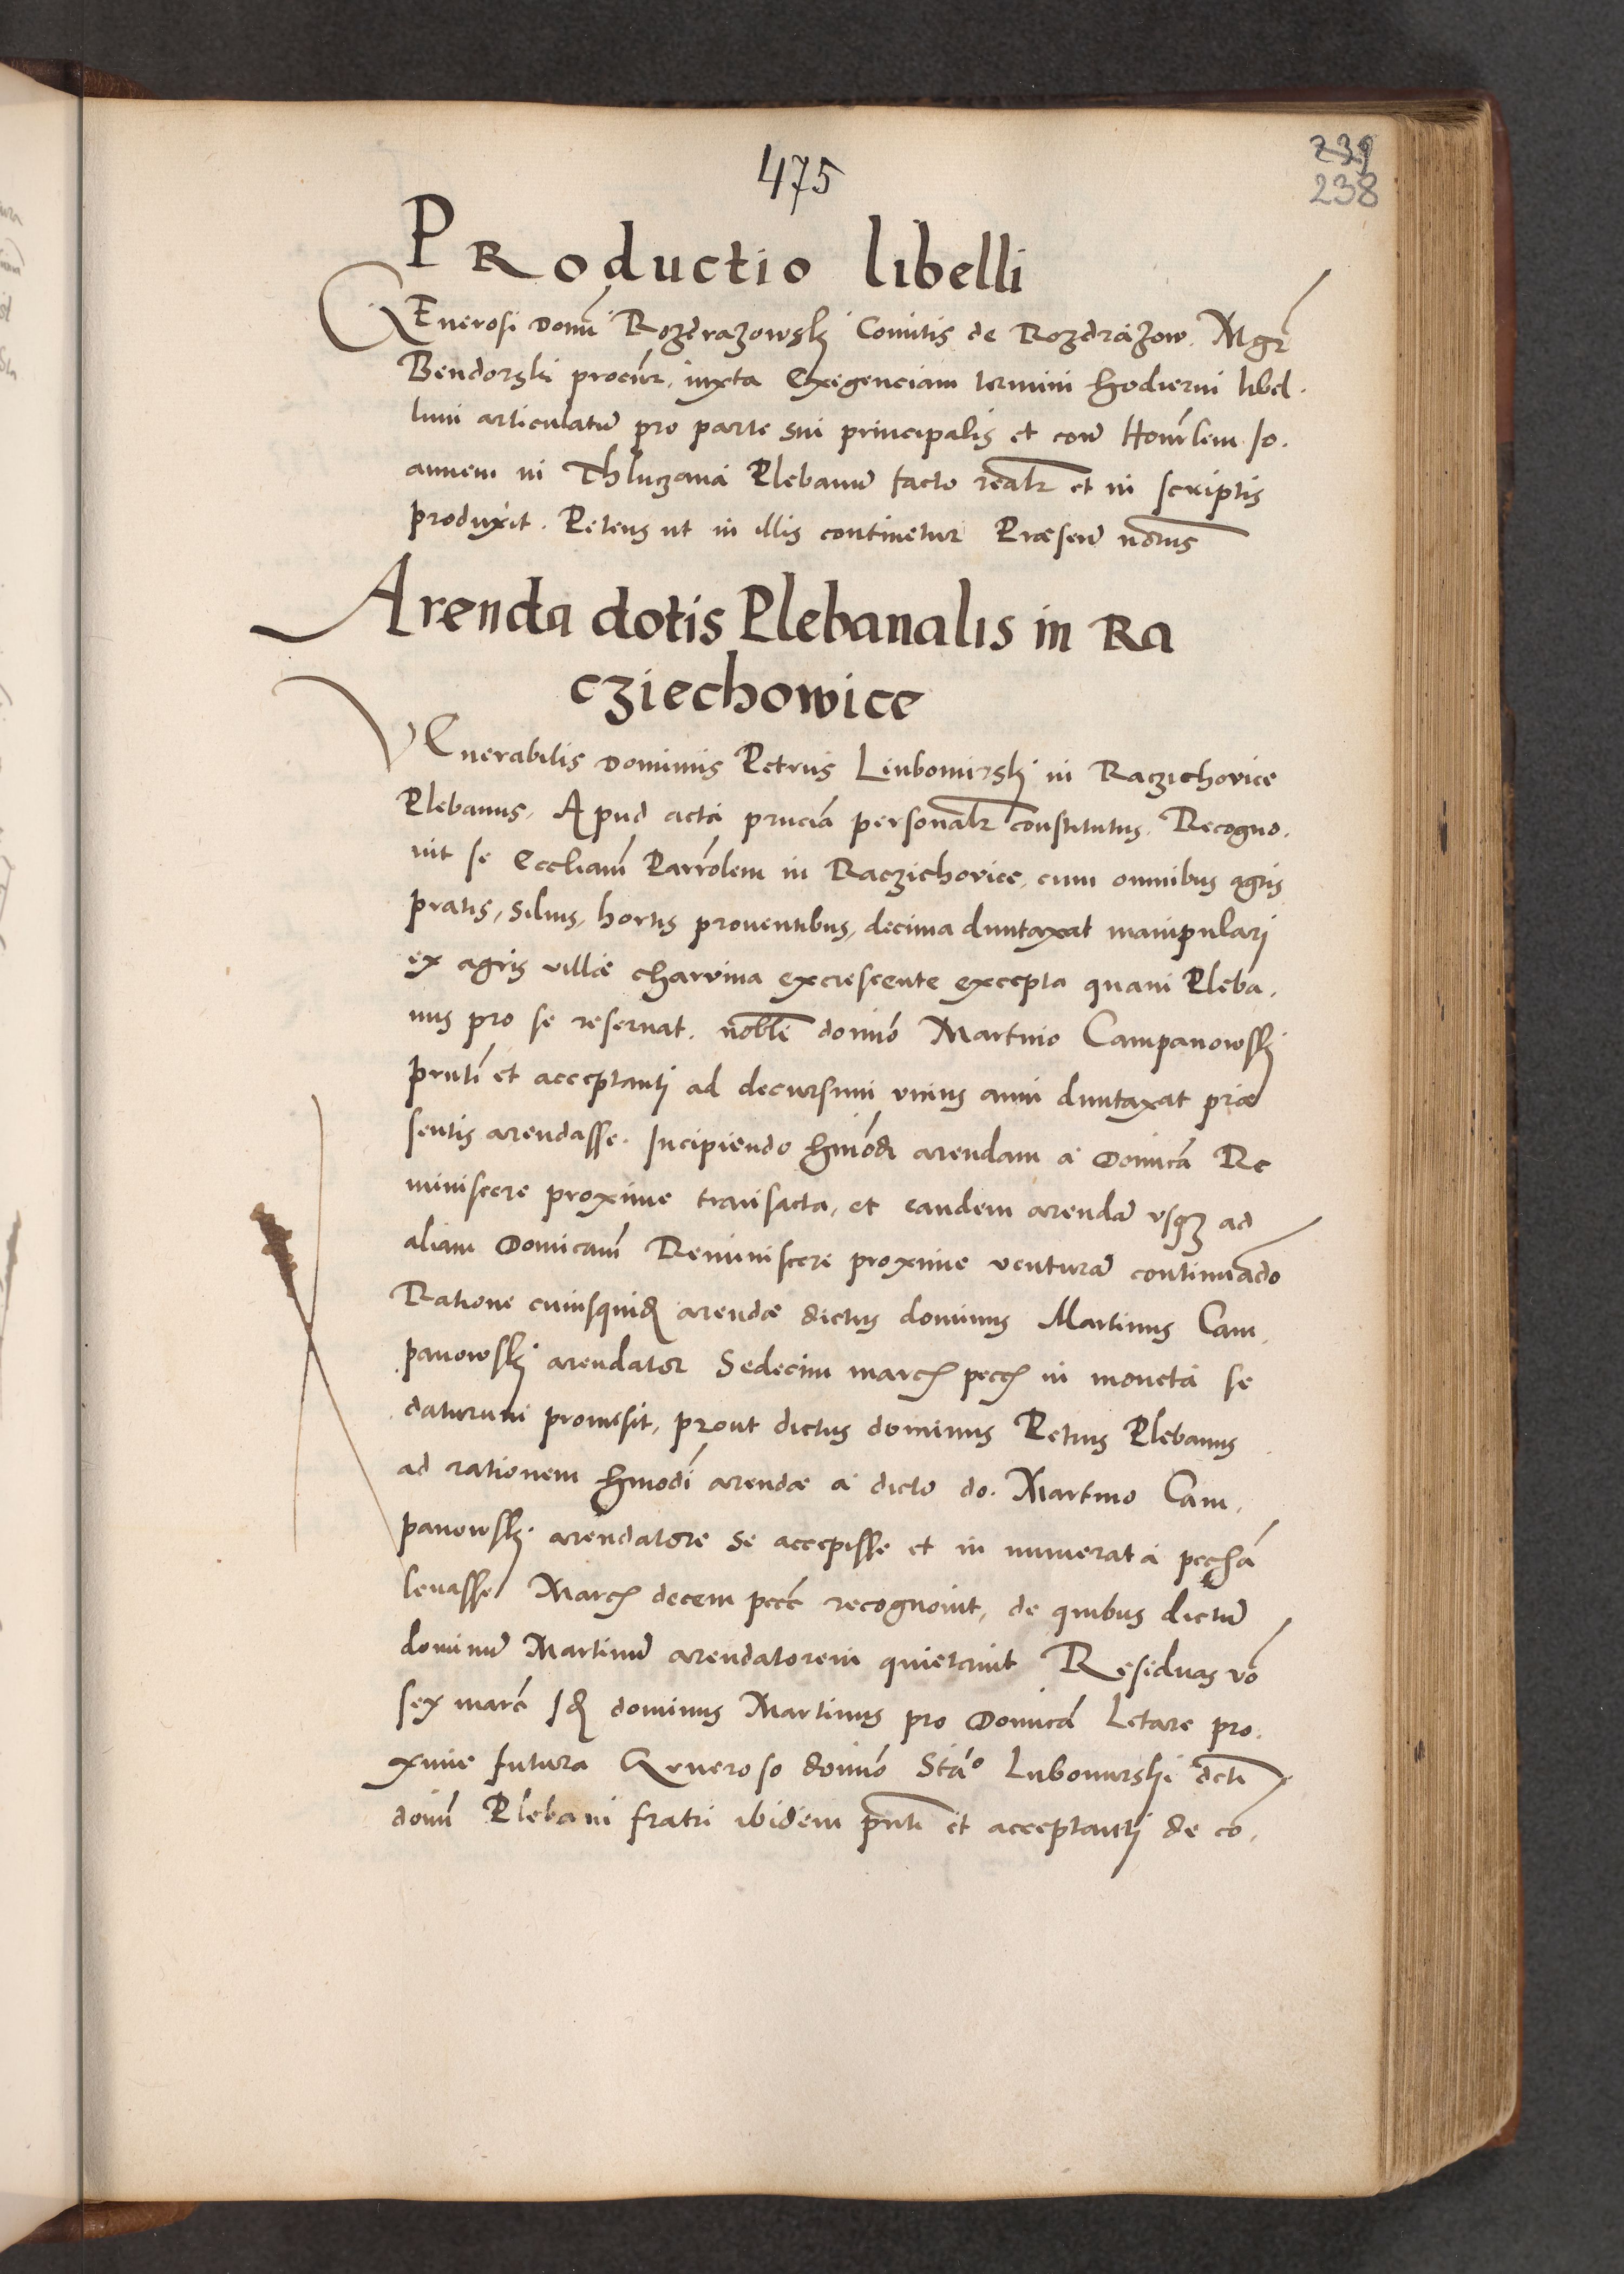 475
239
238
PRoductio libelli
GEnerosi Domī Rozdrazowskj Comitis de Rozdrazow. Mgr̄
Bendorski procūr. iuxta Exegenciam termini hodierni libel.
lum articulatū pro parte sui principalis et con̄ Honr̄lem Jo.
annem in Thluczanÿ Plebanū facto realr̄ et in scriptis
produxit. Petens ut in illis continetur Præsen̄
Arenda dotis Plebanalis in Ra
cziechowice
VEnerabilis Dominus Petrus Liubomirskj in Raczichovice
Plebanus. Apud acta pr̄ncia personalr̄ constitutus. Recogno.
uit se Eccliam̄ Parrōlem in Raczichovice, cum omnibus agris
pratis, siluis, hortis prouentibus, decima duntaxat manipularj
ex agris villæ charvina excrescente excepta quam Pleba.
nus pro se reseruat. nobli̅ domīo Martino Campanowskj
pn̄ti et acceptantj ad decursum vnius anni duntaxat præ
sentis arendasse. Incipiendo hmōdi arendam a Domīca Re
miniscere proxime transacta, et eandem arendā vsqz ad
aliam Domicam̄ Reminiscere proxime venturā continuādo
Ratione cuiusquid arendæ dictus dominus Martinus Cam.
panowskj arendator Sedecim marcȩ pecȩ in moneta se
daturum promisit, prout dictus dominus Petrus Plebanus
ad rationem hmodī arendæ a dicto do. Martino Cam.
panowskj arendatore se accepisse et in numerata pec̄ha
leuasse Marcȩ decem pecc̄ recognouit, de quibus dictū
dominū Martinū arendatorem quietauit Residuas vō
sex marc̄ Id dominus Martinus pro Domīca Letare pro.
xime futura Generoso domīo Stāo Lubomirski dcti
domī Plebani fratri ibidem pn̄ti et acceptantj de co.